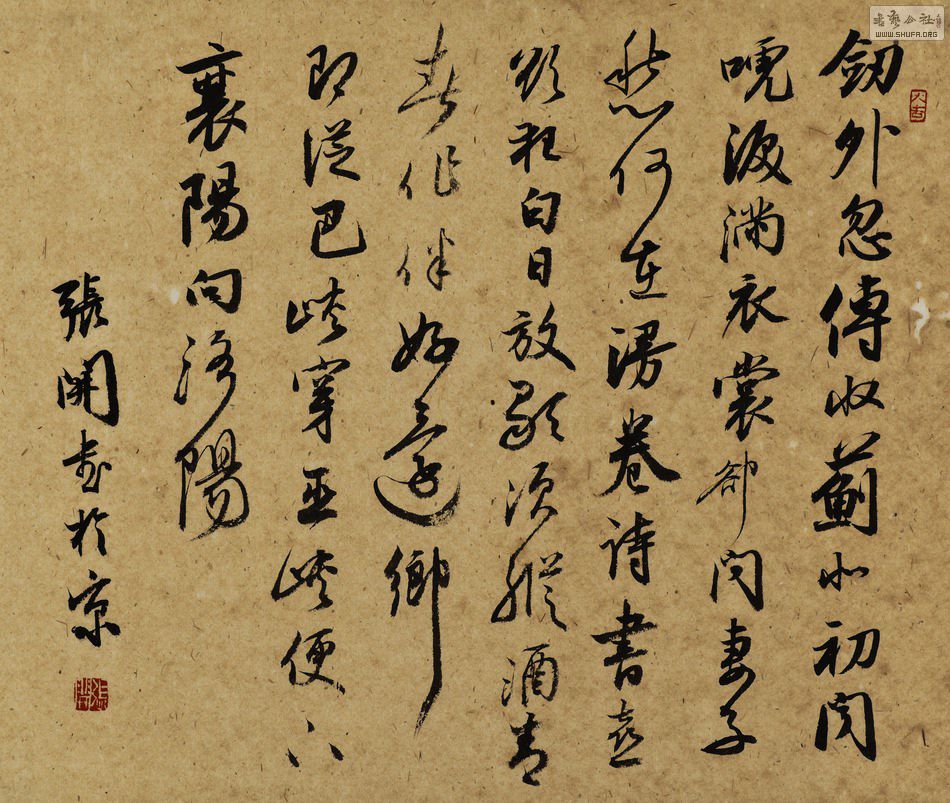 劒外忽傳收薊北初聞
淚滿衣裳卻問妻子
愁何在漫卷詩書喜
欲狂白日放歌須縱酒青
春作伴好還鄉
即從巴峽穿巫峽便下
襄陽向洛陽
張開書於京
書藝公社
WWW.SHUFA.ORG